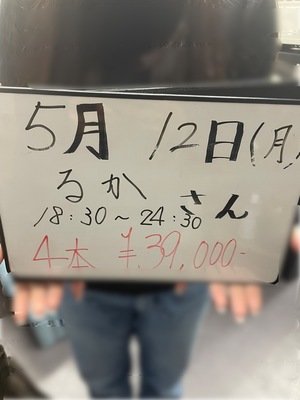 5月 12日(月)
るか さん
18:30~24:30
4本 ¥39,000-